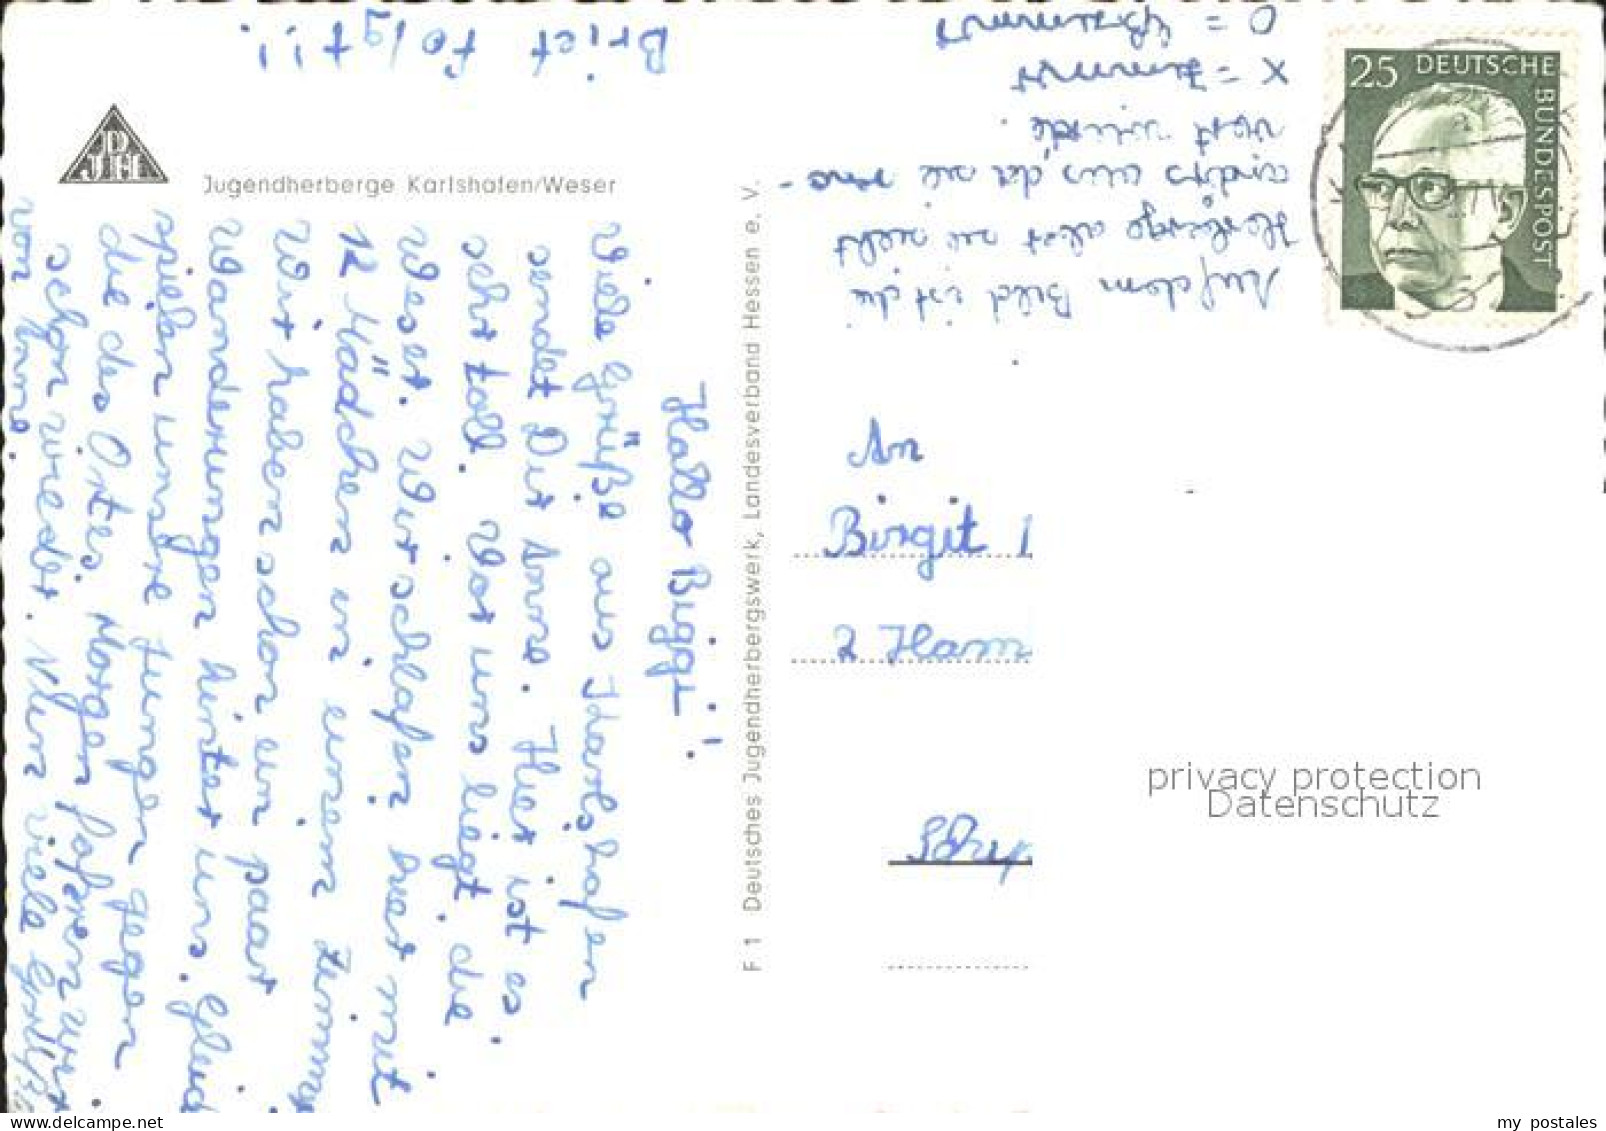 Brief folgt!!
DJH
Jugendherberge Karlshafen/Weser
Hallo Biggi!
Viele Grüße aus Karlshafen
sendet Dir Anne. Hier ist es
sehr toll. Vor uns liegt die
Weser. Wir schlafen hier mit
12 Mädchen in einem Zimmer
Wir haben schon ein paar
Wanderungen hinter uns. Gleich
spielen unsere Jungen gegen
die des Ortes. Morgen fahren wir
schon wieder. Nun viele Grüße
von Anne.
F 1 Deutsches Jugendherbergswerk, Landesverband Hessen e. V.
Auf dem Bild ist die
Herberge aber nicht
wurde.
X = Zimmer
O =
25 DEUTSCHE
BUNDESPOST
An
Birgit
2 Ham
privacy protection
Datenschutz
my postales